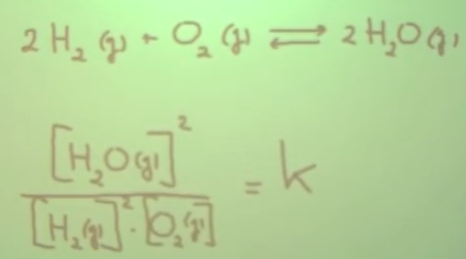 2H₂(g) + O₂(g) ⇌ 2H₂O(g)
[H₂O(g)]²
[H₂(g)]² · [O₂(g)] = K